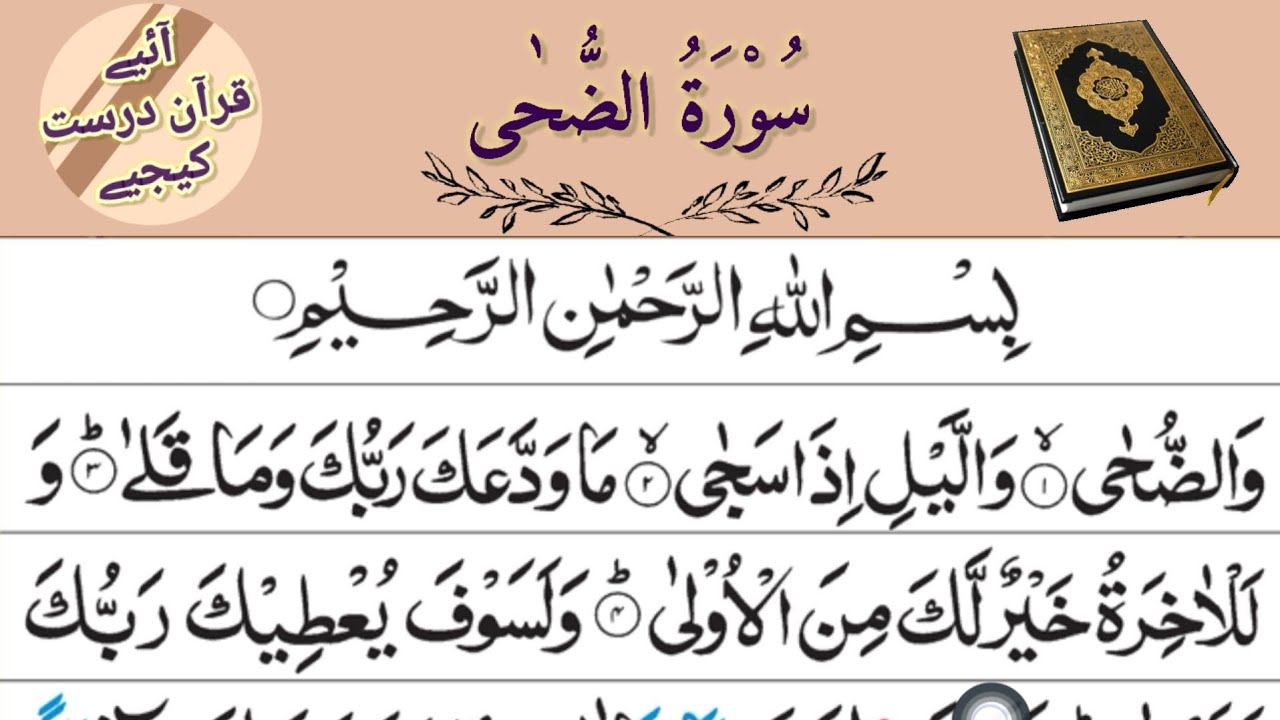 آئیے
قرآن درست
کیجیے
سُوْرَةُ الضُّحٰى
بِسْمِ اللّٰهِ الرَّحْمٰنِ الرَّحِيْمِ
وَالضُّحٰى ۙ‏﴿۱﴾ وَالَّيْلِ اِذَا سَجٰى ۙ‏﴿۲﴾ مَا وَدَّعَكَ رَبُّكَ وَمَا قَلٰى ؕ‏﴿۳﴾ وَ
لَلْاٰخِرَةُ خَيْرٌ لَّكَ مِنَ الْاُوْلٰى ؕ‏﴿۴﴾ وَلَسَوْفَ يُعْطِيْكَ رَبُّكَ